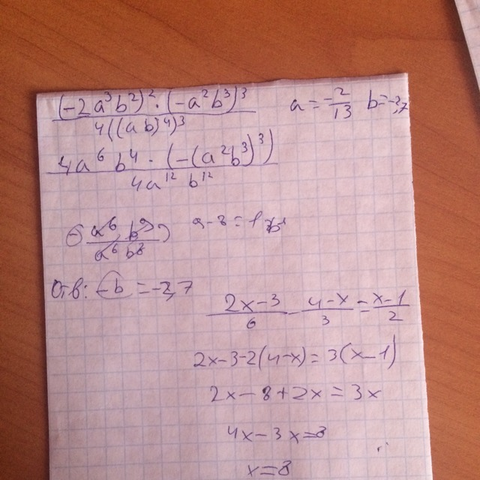 (-2a³b²)²·(-a²b³)³ / 4((ab)⁴)³ a = -2/13 b=-3,7
4a⁶b⁴·(-(a²b³)³) / 4a¹²b¹²
(-) a⁶b⁹ / a⁶b⁸
Отв: -b = -3,7
2x-3/6 - 4-x/3 = x-1/2
2x-3-2(4-x)=3(x-1)
2x-8+2x=3x
4x-3x=8
x=8